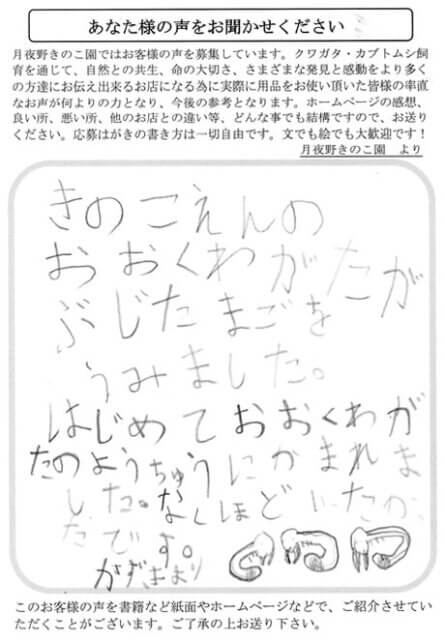 あなた様の声をお聞かせください
月夜野きのこ園ではお客様の声を募集しています。クワガタ・カブトムシ飼
育を通じて、自然との共生、命の大切さ、さまざまな発見と感動をより多く
の方達にお伝え出来るお店になる為に実際に用品をお使い頂いた皆様の率直
なお声が何よりの力となり、今後の参考となります。ホームページの感想、
良い所、悪い所、他のお店との違い等、どんな事でも結構ですので、お送り
ください。応募はがきの書き方は一切自由です。文でも絵でも大歓迎です！
月夜野きのこ園　より
きのこえんの
おおくわがたが
ぶじたまごを
うみました。
はじめておおくわが
たのようちゅうにかまれま
した。なくほどいたか
たです。
このお客様の声を書籍など紙面やホームページなどで、ご紹介させてい
ただくことがございます。ご了承の上お送り下さい。